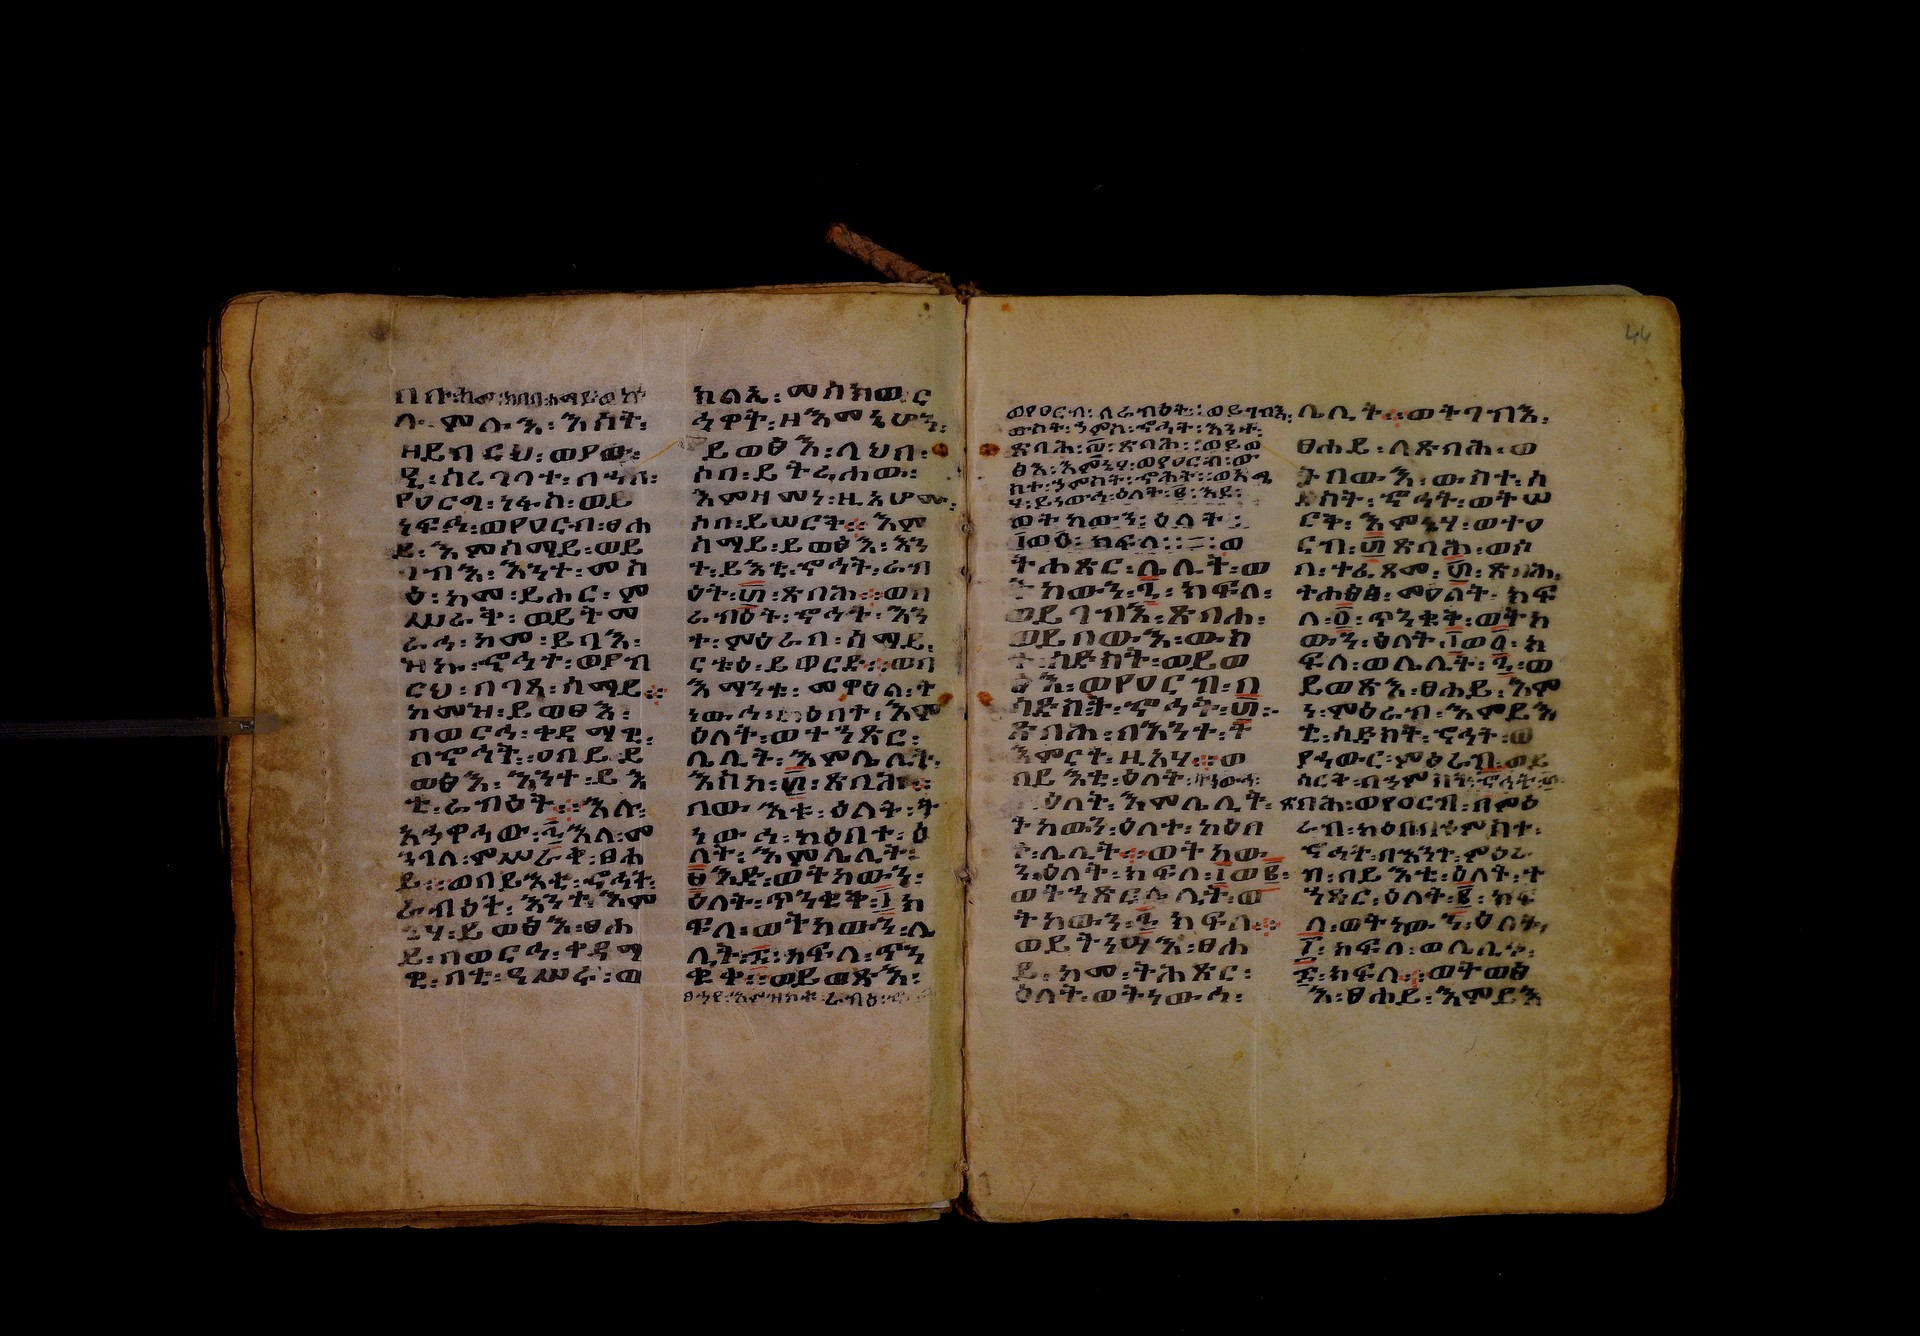 ሉ፡ ምሉ፡ እ፡ እስት፡
ዘይበርህ፡ ወያው፡
ዒ፡ ሰረገላተ፡ በኀበ፡
የዐርግ፡ ነፋስ፡ ወይ
ነፍኅ፡ ወየዐርብ፡ ፀሐ
ይ፡ እምሰማይ፡ ወይ
ገብእ፡ እንተ፡ መስ
ዕ፡ ከመ፡ ይሐር፡ ም
ሥራቀ፡ ወይትመ
ራሕ፡ ከመ፡ ይባእ፡
ዝኩ፡ ኆኅተ፡ ወያብ
ርህ፡ በገጸ፡ ሰማይ።
ከመዝ፡ ይወፅእ፡
በወርኅ፡ ቀዳማዊ፡
በኆኅት፡ ዐባይ፡ ይ
ወፅእ፡ እንተ፡ ይእ
ቲ፡ ራብዕት። እለ፡
አኀዋኅው፡ ፮እለ፡ መ
ንገለ፡ ምሥራቀ፡ ፀሐ
ይ። ወበይእቲ፡ ኆኅት፡
ራብዕት፡ እንተ፡ እም
ኔሃ፡ ይወፅእ፡ ፀሐ
ይ፡ በወርኅ፡ ቀዳማ
ዊ፡ ቦቲ፡ ፲ወ
ክልኤ፡ መስክወር
ኅዋት፡ ዘእምኔሆን፡
ይወፅእ፡ ላህብ፡
ሶበ፡ ይትረኀው፡
እምዘመነ፡ ዚአሆሙ፡
ሶበ፡ ይሠርቅ። እም
ሰማይ፡ ይወፅእ፡ እን
ተ፡ ይእቲ፡ ኆኅት፡ ራብ
ዕት፡ ፴ጽባሕ። ወበ
ራብዕት፡ ኆኅት፡ እን
ተ፡ ምዕራበ፡ ሰማይ፡
ርቱዕ፡ ይወርድ። ወበ
እማንቱ፡ መዋዕል፡ ት
ነውኅ፡ ዕለት፡ እም
ዕለት፡ ወተኀጽር፡
ሌሊት፡ እምሌሊት፡
እስከ፡ ፴፡ ጽባሕ።
በው፡ እቱ፡ ዕለት፡ ት
ነውኅ፡ ክዕበተ፡ ዕ
ለት፡ እምሌሊት፡
፱እድ፡ ወትከውን፡
ዕለት፡ ጥንቁቀ፡ ፲ክ
ፍለ፡ ወትከውን፡ ሌ
ሊት፡ ፰፡ ክፍለ፡ ጥን
ቁቀ፡ ወይወጽእ፡
ፀሐየ፡ እምዝኩቱ፡ ራብዕ፡
ወየዐርብ፡ ለራብዕት። ወይገብእ፡
ውስተ፡ ኃምስ፡ ኆኅት፡ እንተ፡
ጽባሕ፡ ፴፡ ጽባሐ። ወይወ
ፅእ፡ እምኔሃ፡ ወየዐርብ፡ ው
ስተ፡ ኃምስት፡ ኆኅት። ወእሜ
ሃ፡ ይነውኅ፡ ዕለት፡ ፪፡ እደ፡
ወትከውን፡ ዕለት፡
፲ወ፩፡ ክፍለ፡ ወ
ትሐጽር፡ ሌሊት፡ ወ
ትከውን፡ ፯፡ ክፍለ፡
ወይገብእ፡ ጽባሐ፡
ወይበውእ፡ ውስ
ተ፡ ሳድስት፡ ወይወ
ፅእ፡ ወየዐርብ፡ በ
ሳድስት፡ ኆኅት፡ ፴፡
ጽባሐ፡ በእንተ፡ ት
እምርት፡ ዚአሃ። ወ
በይእቲ፡ ዕለት፡ ትነውኅ፡
ዕለት፡ እምሌሊት፡
ትከውን፡ ዕለተ፡ ክዕበ
ተ፡ ሌሊት። ወትከው
ን፡ ዕለት፡ ክፍለ፡ ፲ወ፪፡
ወትኀጽር፡ ሌሊት፡ ወ
ትከውን፡ ፮፡ ክፍለ።
ወይትነሣእ፡ ፀሐ
ይ፡ ከመ፡ ትሕጽር፡
ዕለት፡ ወትነውኅ፡
ሌሊት። ወትገብእ፡
ፀሐይ፡ ለጽባሕ፡ ወ
ትበውእ፡ ውስተ፡ ሳ
ድስት፡ ኆኅት፡ ወትሠ
ርቅ፡ እምኔሃ፡ ወተዐ
ርብ፡ ፴ጽባሐ፡ ወሶ
በ፡ ተፈጸመ፡ ፴፡ ጽባሕ፡
ተሐፅፅ፡ መዓልት፡ ክፍ
ለ፡ ፩፡ ጥንቁቀ፡ ወትከ
ውን፡ ዕለት፡ ፲ወ፩፡ ክ
ፍለ፡ ወሌሊት፡ ፯፡ ወ
ይወጽእ፡ ፀሐይ፡ እም
ነ፡ ምዕራብ፡ እምይእ
ቲ፡ ሳድስት፡ ኆኅት፡ ወ
የሐውር፡ ምዕራብ፡ ወይ
ሠርቅ፡ በኃምስት፡ ኆኅት፡ ፴፡
ጽባሕ፡ ወየዐርብ፡ በምዕ
ራብ፡ ካዕበ፡ በኃምስተ፡
ኆኅት፡ በእንተ፡ ምዕራ
ብ፡ በይእቲ፡ ዕለት፡ ተ
ኀጽር፡ ዕለት፡ ፪፡ ክፍ
ለ፡ ወትነውን፡ ዕለት፡
፲፡ ክፍለ፡ ወሌሊት፡
፰፡ ክፍለ። ወትወፅ
እ፡ ፀሐይ፡ እምይእ